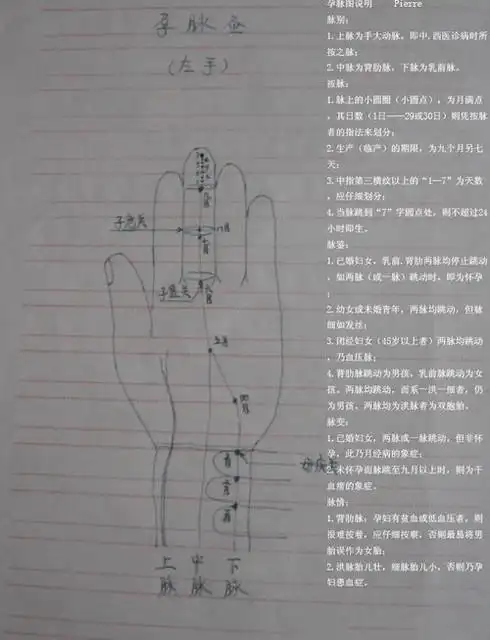 孕脉图
(左手)
子宫关
子宫关
五月
四月
上脉
中脉
下脉
孕脉图说明 Pierre
脉别:
1.上脉为手大动脉。即中.西医诊病时所
按之脉;
2.中脉为背肋脉, 下脉为乳前脉。
按脉:
1.脉上的小圆圈(小圆点), 为月满点
, 其日数(1日——29或30日)则凭按脉
者的指法来划分;
2.生产(临产)的期限, 为九个月另七
天;
3.中指第三横纹以上的“1—7”为天数
, 应仔细划分;
4.当脉跳到“7”字圆点处, 则不超过24
小时即生。
脉鉴:
1.已婚妇女, 乳前.背肋两脉均停止跳动
, 如两脉(或一脉)跳动时, 即为怀孕
;
2.幼女或未婚青年, 两脉均跳动, 但脉
细如发丝;
3.闭经妇女(45岁以上者)两脉均跳动
, 乃血压脉;
4.背肋脉跳动为男孩, 乳前脉跳动为女
孩。两脉均跳动, 而系一洪一细者, 仍
为男孩。两脉均为洪脉者为双胞胎。
脉变:
1.已婚妇女, 两脉或一脉跳动, 但非怀
孕, 此乃月经病的象症;
2.未怀孕而脉跳至九月以上时, 则为干
血痨的象症。
脉情:
1.背肋脉, 孕妇有贫血或低血压者, 则
很难按着, 应仔细按察, 否则最易将男
胎误作为女胎;
2.洪脉胎儿壮, 细脉胎儿小, 否则乃孕
妇患血症。